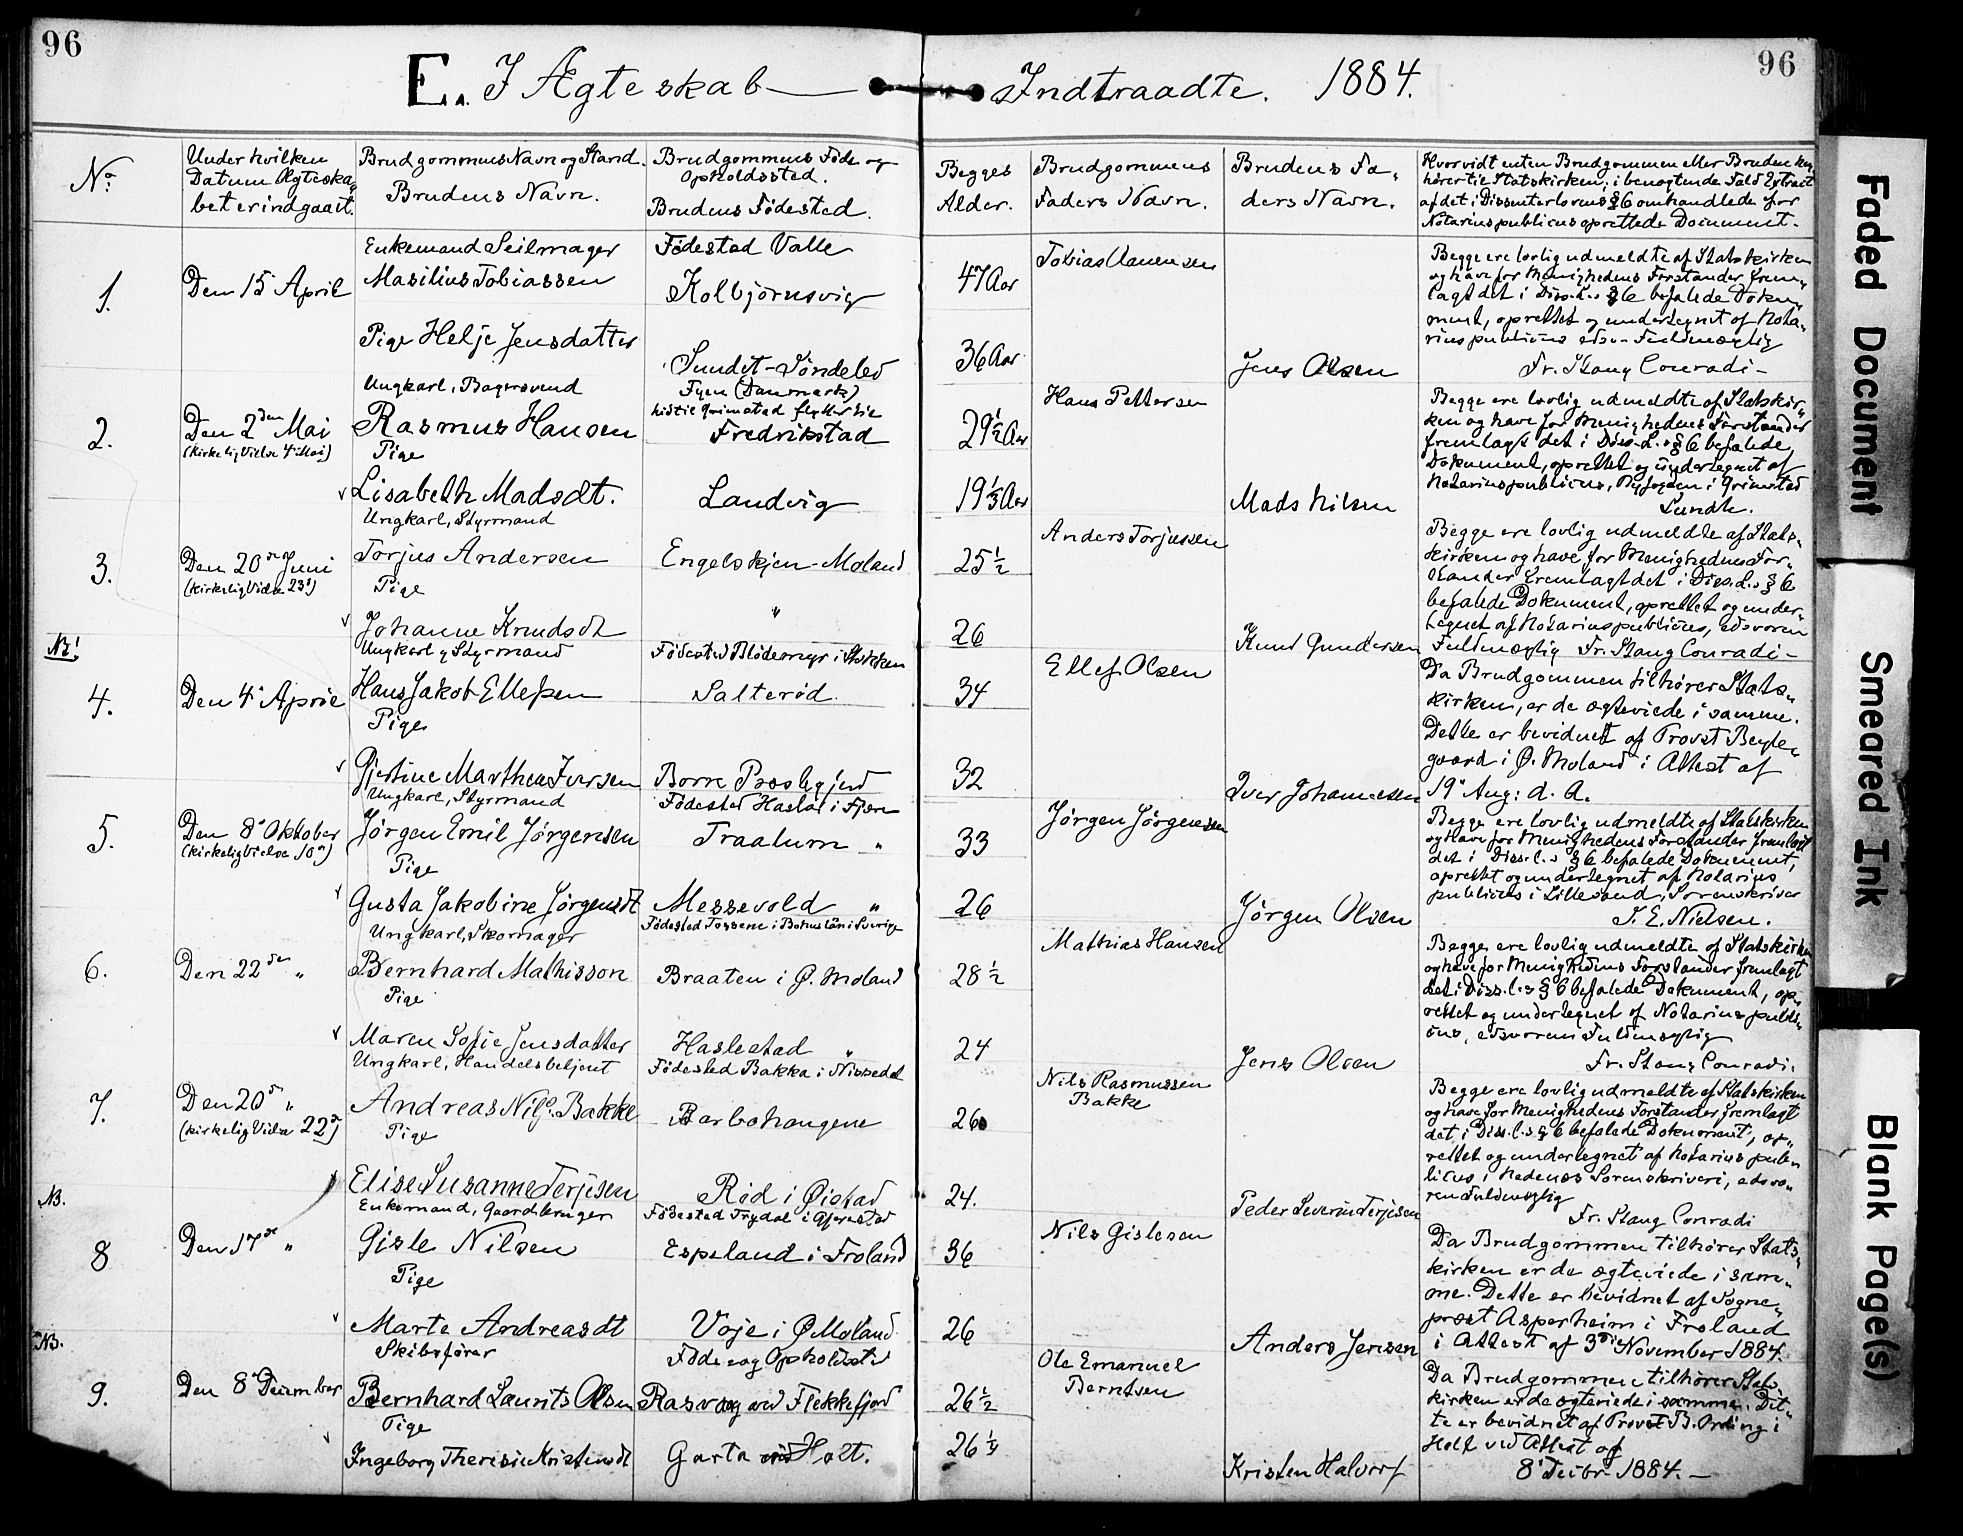 96
96
E. I Ægteskab — Indtraadte. 1884.
No
Under hvilken
Datum Ægteska„
bet er indgaaet.
Brudgommens Navn og Stand.
Brudens Navn.
Brudgommens Føde og
Opholdssted.
Brudens Fødested.
Begges
Alder.
Brudgommens
Faders Navn.
Brudens Fa„
ders Navn.
Hvorvidt enten Brudgommen eller Bruden
hører til Statskirken; i benegtende Fald Extract
af det i Dissenterlovens § 6 omhandlede for
Notarius publicus oprettede Document.
1.
Den 15 April
Enkemand Seilmager
Masilius Tobiassen
Pige Helje Jensdatter
Fødested Valle
Kolbjörnsvig
Sundet - Söndeled
47 Aar
36 Aar
Tobias
Jens Olsen
Begge ere lovlig udmeldte af Statskirken
og have for Menighedens Forstander frem„
lagt det i Diss. L. § 6 befalede Doku„
ment, oprettet og undertegnet af Nota„
rius publicus edsv. Fuldmægtig
Fr. Stang Conradi -
2.
Den 2den Mai
(kirkelig Vielse 4 Mai)
Ungkarl, Bagersvend
Rasmus Hansen
Pige
Lisabeth Madsdt.
Fyen (Danmark)
hidtil Grimstad flytter til
Fredrikstad
Landvig
29 1/2 Aar
19 1/3 Aar
Hans Pettersen
Mads Nilsen
Begge ere lovlig udmeldte af Statskir„
ken og have for Menighedens Forstander
fremlagt det i Diss. L. § 6 befalede
Dokument, oprettet og undertegnet af
Notarius publicus, Byfogden i Grimstad
Lundh.
3.
Den 20de Juni
(kirkelig Vielse 23d)
Ungkarl, Styrmand
Torjus Andersen
Pige
Johanne Knudsdt
Engelskjen - Moland
"
25 1/2
26
Anders Torjussen
Knud Gundersen
Begge ere lovlig udmeldte af Stats„
kirken og have for Menighedens For„
stander fremlagt det i Diss. L. § 6
befalede Dokument, oprettet og under„
tegnet af Notarius publicus, edsvoren
Fuldmægtig Fr. Stang Conradi -
NB!
4.
Den 4de April
Ungkarl, Styrmand
Hans Jakob Ellefsen
Pige
Gjertine Marthea Iversen
Fødested Blödemyr i Stokken
Salteröd
Borre Præstegjeld
34
32
Ellef Olsen
Iver Johannesen
Da Brudgommen tilhører Stats„
kirken, er de ægteviede i samme.
Dette er bevidnet af Provst
gaard i Ø. Moland i Attest af
19de Aug: d. A.
5.
Den 8de Oktober
(kirkelig Vielse 10de)
Ungkarl, Styrmand
Jörgen Emil Jörgensen
Pige
Gusta Jakobine Jörgensdt
Fødested Hastal i Fjære
Traalum "
Messevold "
33
26
Jörgen Jörgensen
Jörgen Olsen
Begge ere lovlig udmeldte af Statskirken
og have for Menighedens Forstander fremlagt
det i Diss. l.s § 6 befalede Dokument,
oprettet og undertegnet af Notarius
publicus i Lillesand, Sorenskriver
S. E. Nielsen.
6.
Den 22de "
Ungkarl, Skomager
Bernhard Mathisson
Pige
Maren Sofie Jensdatter
Fødested Tossene i Bohuslän i Sverige
Braaten i Ø. Moland
Haslestad "
28 1/2
24
Mathias Hansen
Jens Olsen
Begge ere lovlig udmeldte af Statskirken
og have for Menighedens Forstander fremlagt
det i Diss. l.s § 6 befalede Dokument, op„
rettet og undertegnet af Notarius publi„
cus, edsvoren Fuldmægtig
Fr. Stang Conradi.
7.
Den 20de "
(kirkelig Vielse 22de)
Ungkarl, Handelsbetjent
Andreas Nils. Bakke
Pige
Elise Susanne Terjesen
Fødested Bakka i Nissedal
Barbohaugene
Röd i Øistad
26
24.
Nils Rasmussen
Bakke
Peder Severin Terjesen
Begge ere lovlig udmeldte af Statskirken
og have for Menighedens Forstander fremlagt
det i Diss. l.s § 6 befalede Dokument, op„
rettet og undertegnet af Notarius pub„
licus i Nedenæs Sorenskriveri, edsvo„
ren Fuldmægtig
Fr. Stang Conradi
NB.
8
Den 17de "
Enkemand, Gaardbruger
Gisle Nilsen
Pige
Marte Andreasdt
Fødested Trydal i Gjerestad
Espeland i Froland
Voje i Ø Moland
36
26
Nils Gislesen
Anders Jensen
Da Brudgommen tilhører Stats„
kirken er de ægteviede i sam„
me. Dette er bevidnet af Sogne„
præst Asperheim i Froland
i Attest af 3die November 1884.
NB.
9.
Den 8de December
Skibsfører
Bernhard Laurits Olsen
Pige
Ingeborg Theresie Kristensdt
Føde og Opholdssted
Rasvaag ved Flekkefjord
Garta Holt.
26 1/2
26 1/4
Ole Emanuel
Berntsen
Kristen Halvors.
Da Brudgommen tilhører Stats
kirken er de ægteviede i samme. Det„
te er bevidnet af Provst B. Ording i
Holt ved Attest af
8de Decbr 1884. —
Faded Document
Smeared Ink
Blank Page(s)